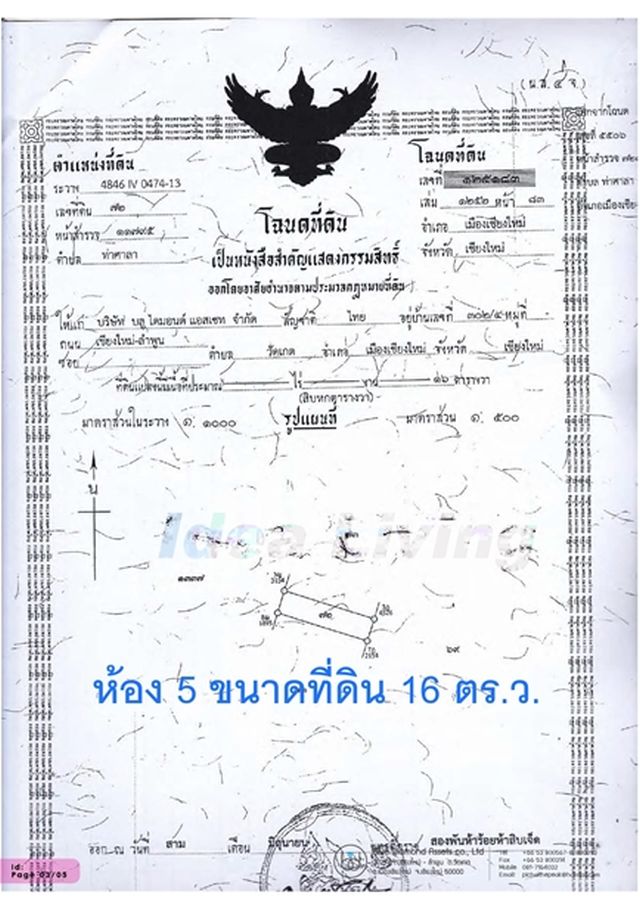 (น.ส. ๔ จ.)
ตำแหน่งที่ดิน
ระวาง 4846 IV 0474-13
เลขที่ดิน ๗๒
หน้าสำรวจ ๑๑๗๙๕
ตำบล ท่าศาลา
โฉนดที่ดิน
เลขที่ ๑๒๕๑๘๓
เล่ม ๑๒๕๒ หน้า ๘๓
อำเภอ เมืองเชียงใหม่
จังหวัด เชียงใหม่
โฉนดที่ดิน
เป็นหนังสือสำคัญแสดงกรรมสิทธิ์
ออกโดยอาศัยอำนาจตามประมวลกฎหมายที่ดิน
ให้แก่ บริษัท บลู ไดมอนด์ แอสเซท จำกัด สัญชาติ ไทย อยู่บ้านเลขที่ ๓๐๒/๔ หมู่ที่
ถนน เชียงใหม่-ลำพูน
ซอย ตำบล วัดเกต อำเภอ เมืองเชียงใหม่ จังหวัด เชียงใหม่
ที่ดินแปลงนี้มีเนื้อที่ประมาณ ไร่ งาน ๑๖ ตารางวา
(สิบหกตารางวา)
มาตราส่วนในระวาง ๑: ๑๐๐๐ รูปแผนที่ มาตราส่วน ๑: ๕๐๐
น
Idea Living
๑๓๓๗
๗๒
๖๙
ห้อง 5 ขนาดที่ดิน 16 ตร.ว.
ออก ณ วันที่ สาม เดือน มิถุนายน สองพันห้าร้อยห้าสิบเจ็ด
Id:
Page 03/05